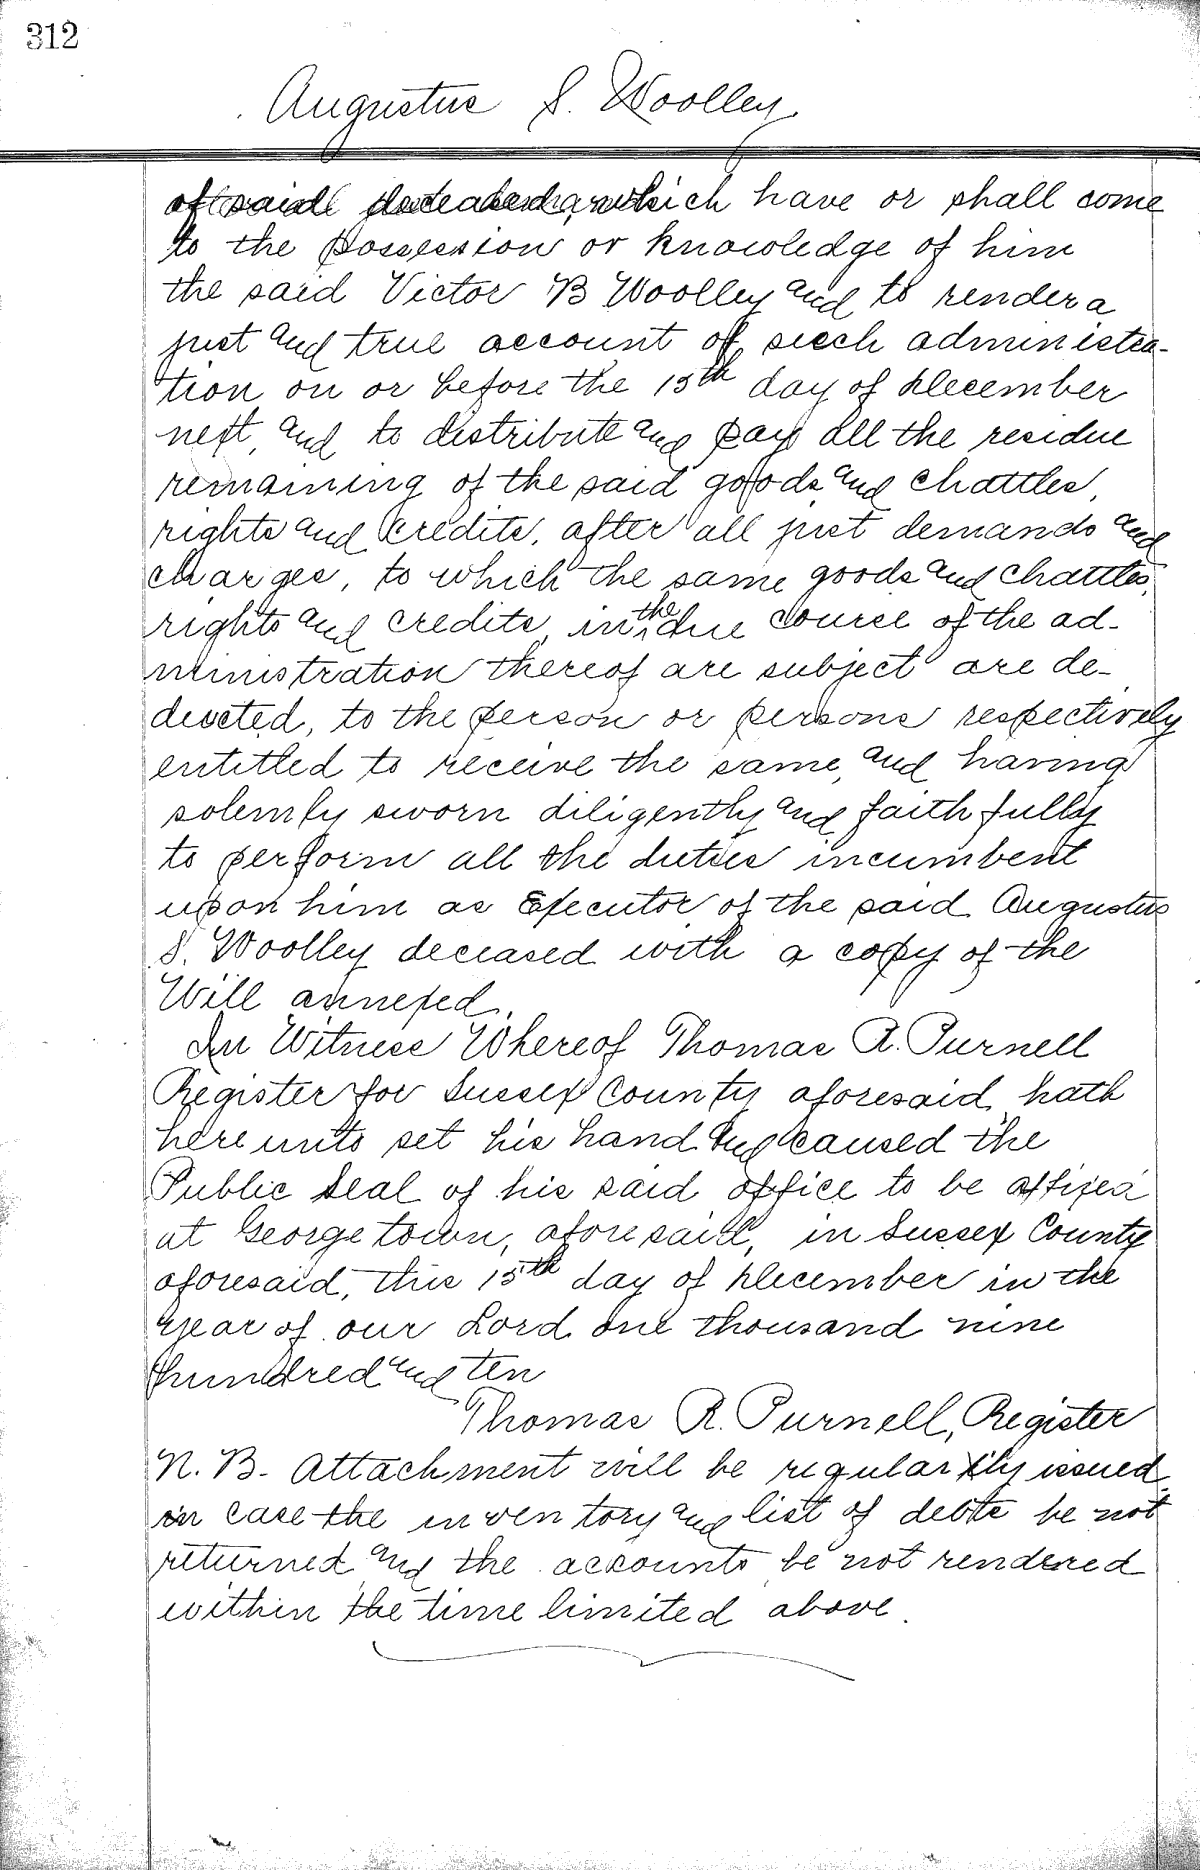 312
Augustus S. Woolley
of said deceased, which have or shall come
to the possession or knowledge of him
the said Victor B Woolley and to render a
just and true account of such administra-
tion on or before the 15th day of December
next, and to distribute and pay all the residue
remaining of the said goods and chattles,
rights and credits, after all just demands and
charges, to which the same goods and chattles,
rights and credits, in the due course of the ad-
ministration thereof are subject are de-
ducted, to the person or persons respectively
entitled to receive the same, and having
solemly sworn diligently and faithfully
to perform all the duties incumbent
upon him as Executor of the said Augustus
S. Woolley deceased with a copy of the
Will annexed.
In Witness Whereof Thomas R. Purnell
Register for Sussex County aforesaid, hath
hereunto set his hand and caused the
Public Seal of his said office to be affixed
at Georgetown, aforesaid, in Sussex County
aforesaid, this 15th day of December in the
year of our Lord one thousand nine
hundred and ten
Thomas R. Purnell, Register
N. B. Attachment will be regularily issued
in case the inventory and list of debts be not
returned and the accounts be not rendered
within the time limited above.